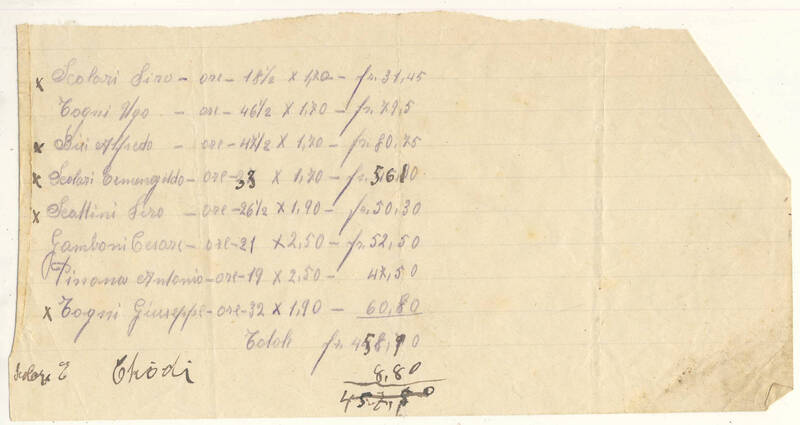 x Scolari Siro - ore - 18½ x 1,70 - fr. 31,45
Togni Ugo - ore - 46½ x 1,70 - fr. 79,5
x Bizi Alfredo - ore - 47½ x 1,70 - fr. 80,75
x Scolari Ermengildo - ore - 33 x 1,70 - fr. 56,10
x Scattini Siro - ore - 26½ x 1,90 - fr. 50,30
Gamboni Cesare - ore - 21 x 2,50 - fr. 52,50
Pinana Antonio - ore - 19 x 2,50 - 47,50
x Togni Giuseppe - ore - 32 x 1,90 - 60,80
Totale fr. 458,90
Scolari E Chiodi 8,80